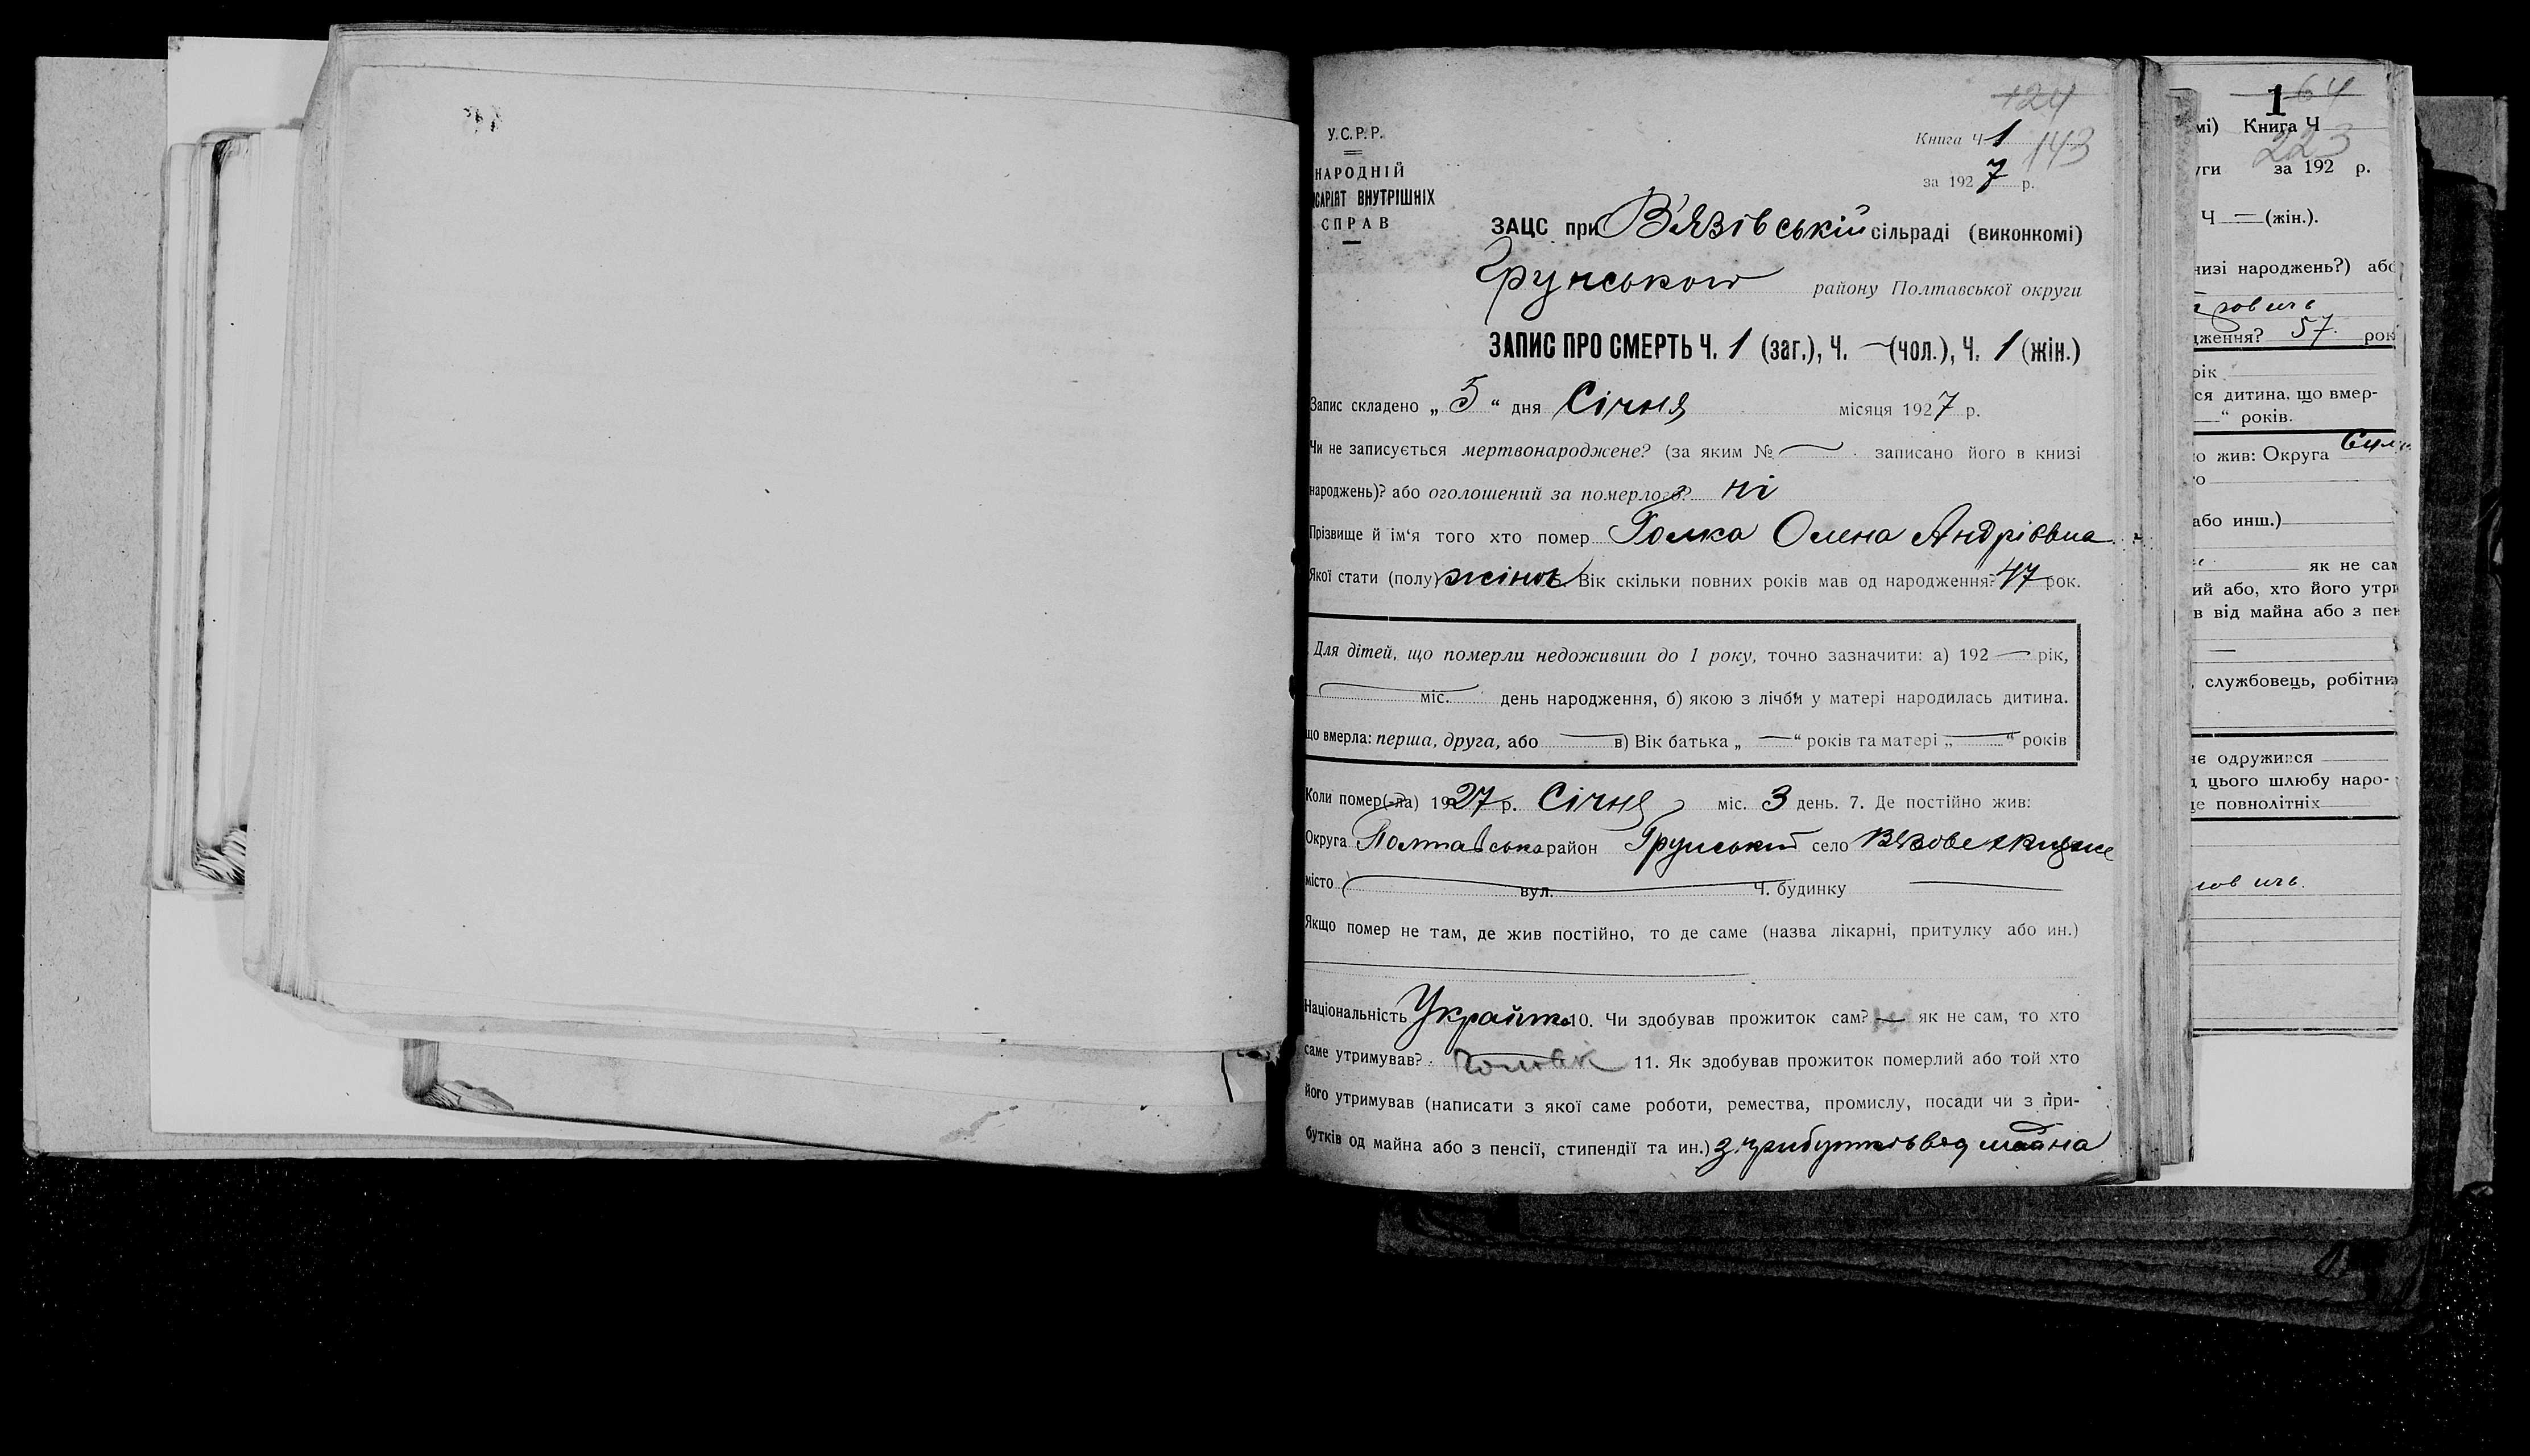 124
У.С.Р.Р.
Книга Ч 1 143
НАРОДНІЙ
САРІЯТ ВНУТРІШНІХ
за 1927 р.
СПРАВ
ЗАЦС при В'язівській сільраді (виконкомі)
Грунського району Полтавської округи
ЗАПИС ПРО СМЕРТЬ Ч. 1 (заг.), Ч. — (чол.), Ч. 1 (жін.)
Запис складено „ 5 “ дня Січня місяця 1927 р.
Чи не записується мертвонароджене? (за яким № — записано його в книзі
народжень)? або оголошений за померлого? ні
Прізвище й ім'я того хто помер Голка Олена Андріївна
Якої стати (полу) жіноч. Вік скільки повних років мав од народження? 47 рок.
Для дітей, що померли недоживши до 1 року, точно зазначити: а) 192 — рік,
— міс. день народження, б) якою з лічби у матері народилась дитина.
що вмерла: перша, друга, або — в) Вік батька „ — “ років та матері „ — “ років
Коли помер(-ла) 1927 р. Січня міс. 3 день. 7. Де постійно жив:
Округа Полтавська район Грунський село
місто — вул. Ч. будинку —
Якщо помер не там, де жив постійно, то де саме (назва лікарні, притулку або ин.)
Національність Україн. 10. Чи здобував прожиток сам? — як не сам, то хто
саме утримував? чоловік 11. Як здобував прожиток померлий або той хто
його утримував (написати з якої саме роботи, ремества, промислу, посади чи з при-
бутків од майна або з пенсії, стипендії та ин.) з прибутків від майна
1 64
мі) Книга Ч
223
уги за 192 р.
Ч — (жін.).
низі народжень?) або
дження? 57 рок
рік
ся дитина, що вмер-
— “ років.
о жив: Округа Сум
го
або инш.)
як не сам
ий або, хто його утри
в від майна або з пен
—
, службовець, робітни
не одружився
д цього шлюбу наро-
ще повнолітніх